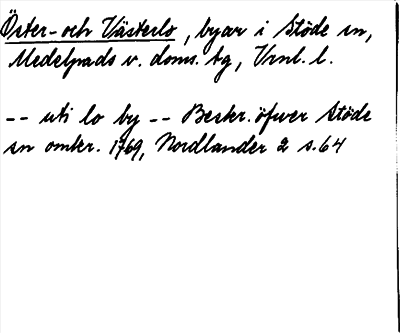 Öster- och Västerlo, byar i Stöde sn,
Medelpads v. doms. tg, Vrnl. l.
-- uti lo by -- Beskr. öfver Stöde
sn omkr. 1769, Nordlander 2 s. 64